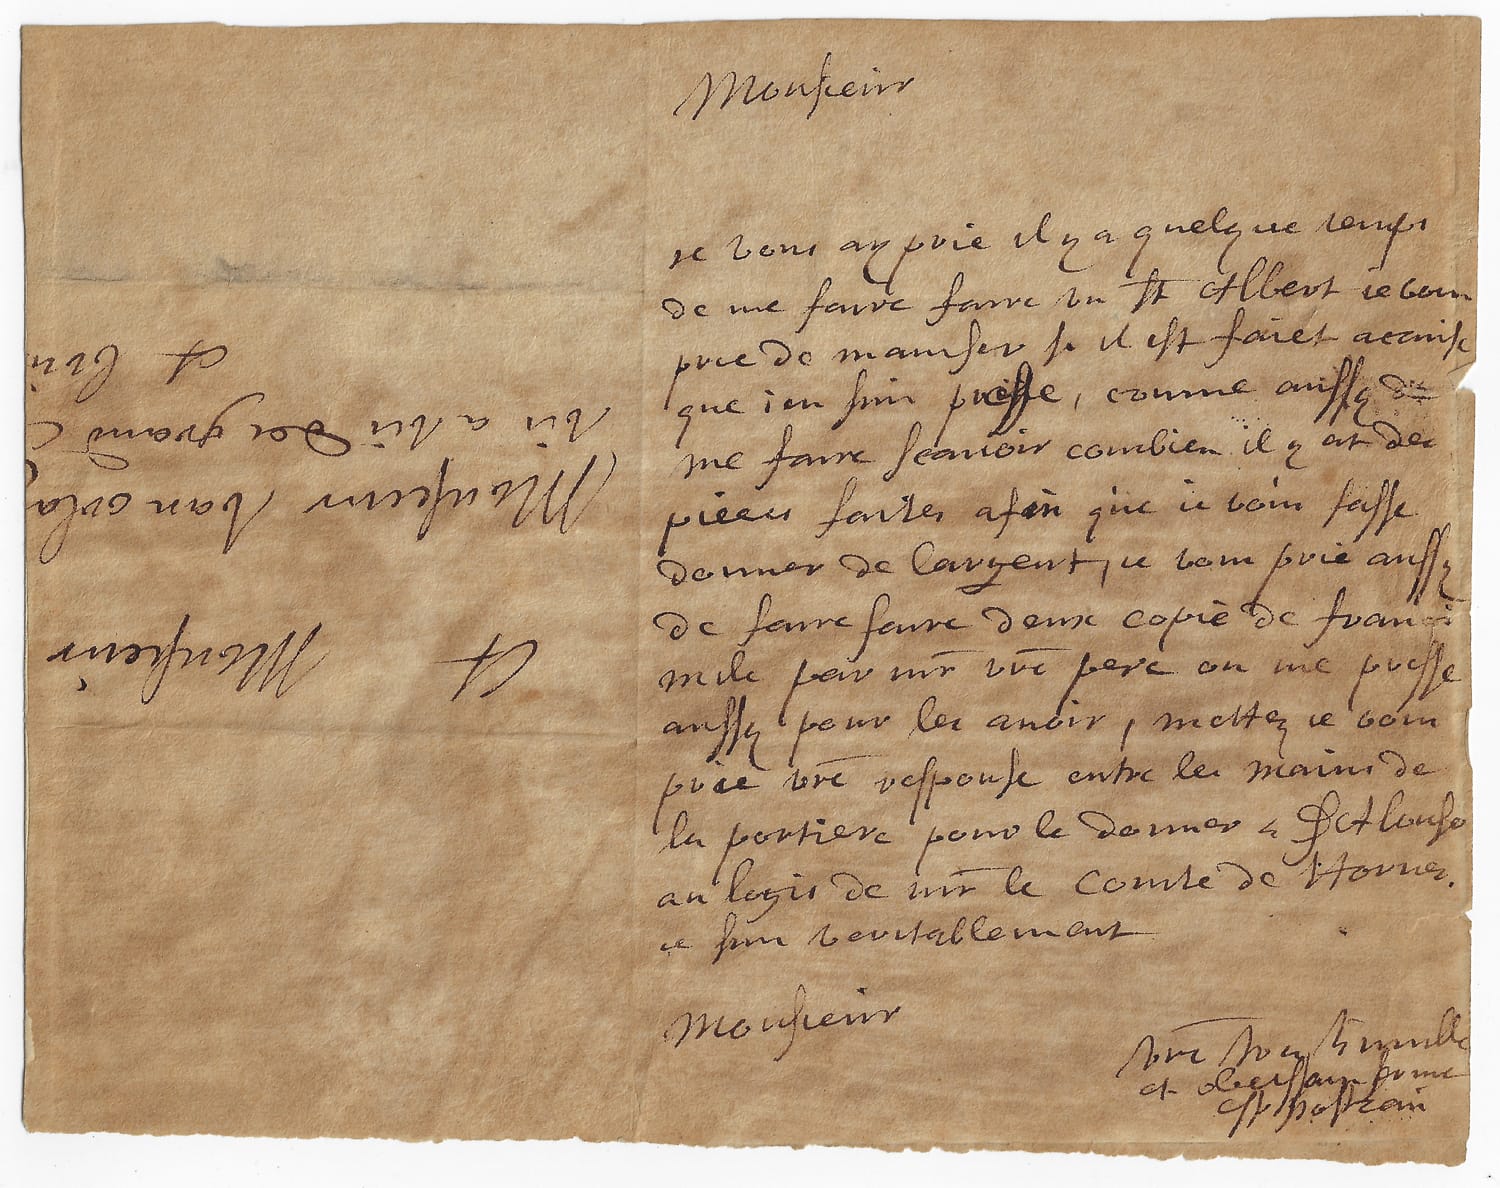 Monsieur
je vous ay prie il y a quelque temps
de me faire faire un St Albert je vous
prie de mander si il est faict acause
que j en suis presse, comme aussy de
me faire scavoir combien il y at des
pieces faites afin que je vous fasse
donner de largent, je vous prie aussy
de faire faire deux copie de francois
mile par mr vre pere on me presse
aussy pour les avoir, mettez je vous
prie vre response entre les mains de
la portiere pour le donner a Alonso
au logis de mr le Comte de Hornes.
je suis veritablement
Monsieur
vre tres humble
et obeissant
A Monsieur
Monsieur van
des grand
A